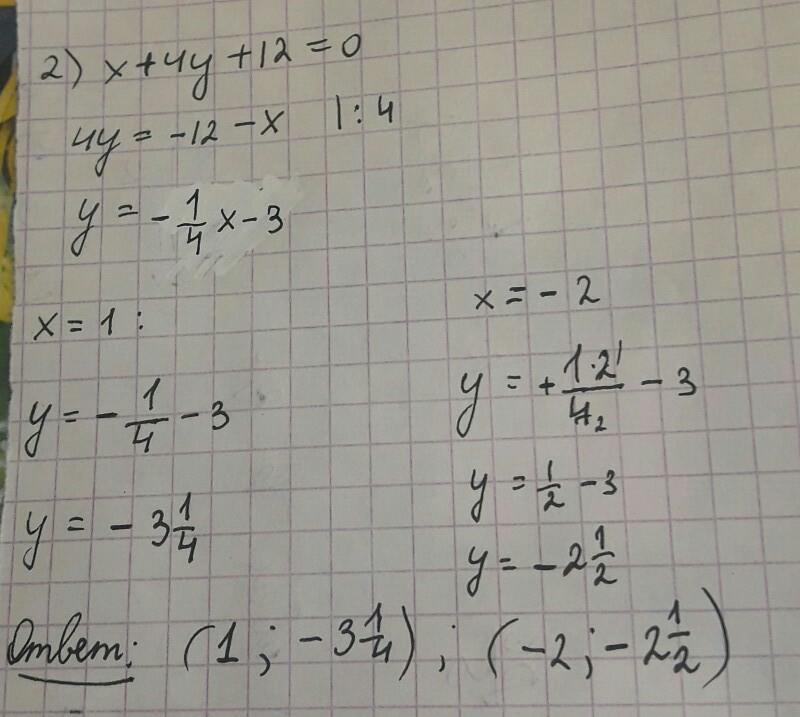 2) x + 4y + 12 = 0
4y = -12 - x |: 4
y = - 1/4 x - 3
x = 1 :
y = - 1/4 - 3
y = - 3 1/4
x = - 2
y = + 1·2¹/4₂ - 3
y = 1/2 - 3
y = - 2 1/2
Ответ: (1 ; - 3 1/4) ; (-2 ; - 2 1/2)